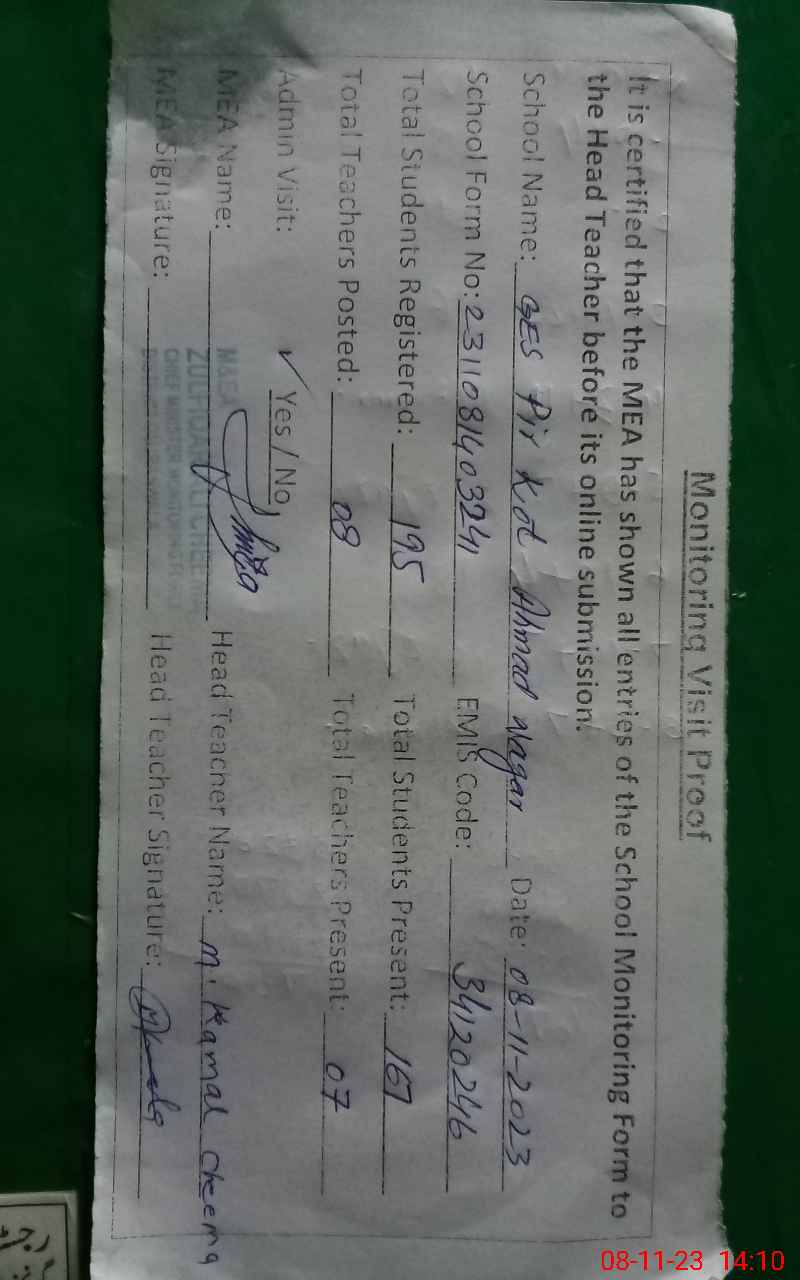 Monitoring Visit Proof
It is certified that the MEA has shown all entries of the School Monitoring Form to
the Head Teacher before its online submission.
School Name: GES Pir Kot Ahmad Nagar Date: 08-11-2023
School Form No: 231108140324 EMIS Code: 34120246
Total Students Registered: 195 Total Students Present: 167
Total Teachers Posted: 08 Total Teachers Present: 07
Admin Visit: ✓ Yes / No
MEA Name: Head Teacher Name: M. Kamal Cheema
MEA Signature: Head Teacher Signature:
M&EA
CHIEF MINISTER MONITORING
08-11-23 14:10